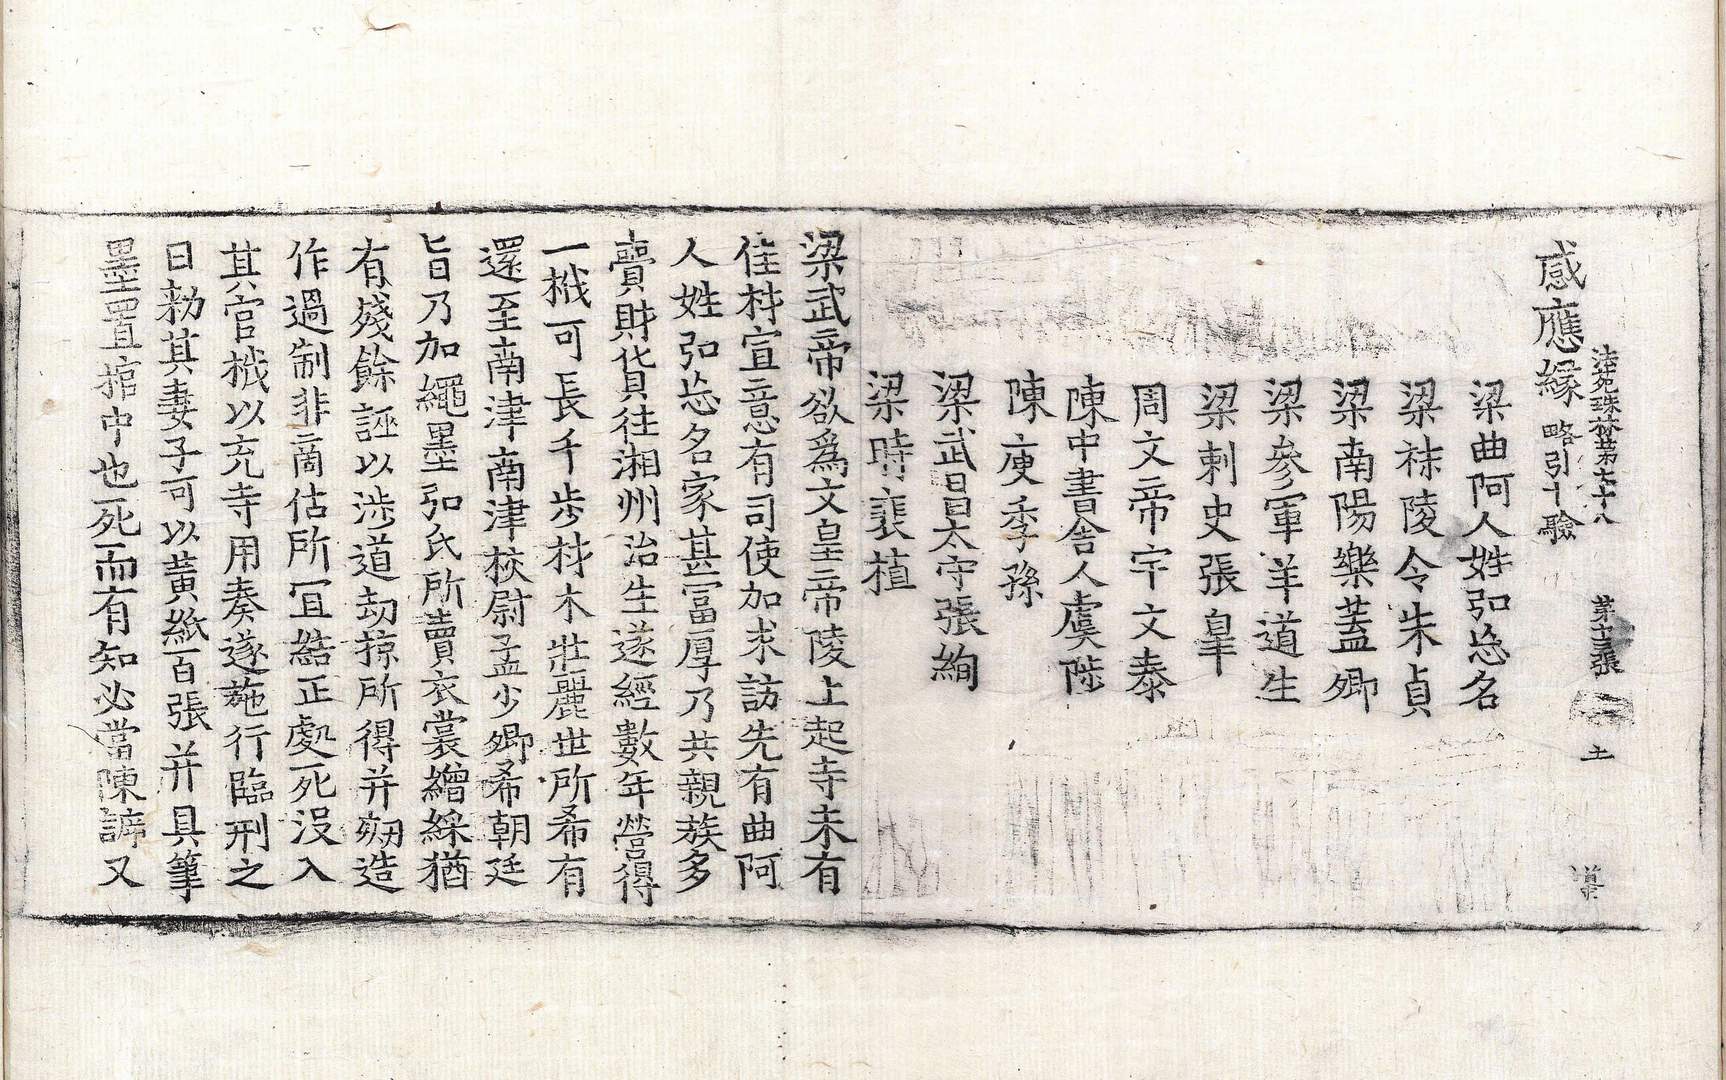 法苑珠林第七十八　第十三張　土　漠
感應緣略引十驗
梁曲阿人姓弘忘名
梁秣陵令朱貞
梁南陽樂蓋卿
梁參軍羊道生
梁刺史張皐
周文帝宇文泰
陳中書舍人虞陟
陳庾季孫
梁武昌太守張絢
梁時裴植
梁武帝欲爲文皇帝陵上起寺未有
佳材宣意有司使加求訪先有曲阿
人姓弘忘名家甚富厚乃共親族多
賷財貨往湘州治生遂經數年營得
一栰可長千步材木壯麗世所希有
還至南津南津校尉孟少卿希朝廷
旨乃加繩墨弘氏所賣衣裳繒綵猶
有殘餘誣以涉道劫掠所得并劾造
作過制非商估所冝結正處死沒入
其官栰以充寺用奏遂施行臨刑之
日勑其妻子可以黃紙百張并具筆
墨置棺中也死而有知必當陳訴又